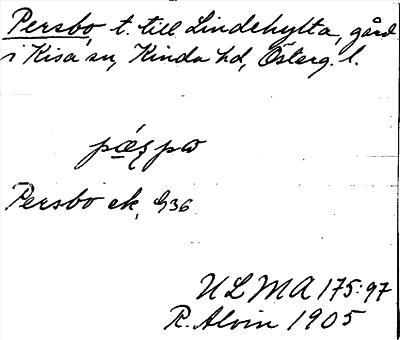 Persbo, t. till Lindehylta, gård
i Kisa sn, Kinda hd, Österg. l.
Persbo ek, G36
ULMA 175:97
R. Alvin 1905